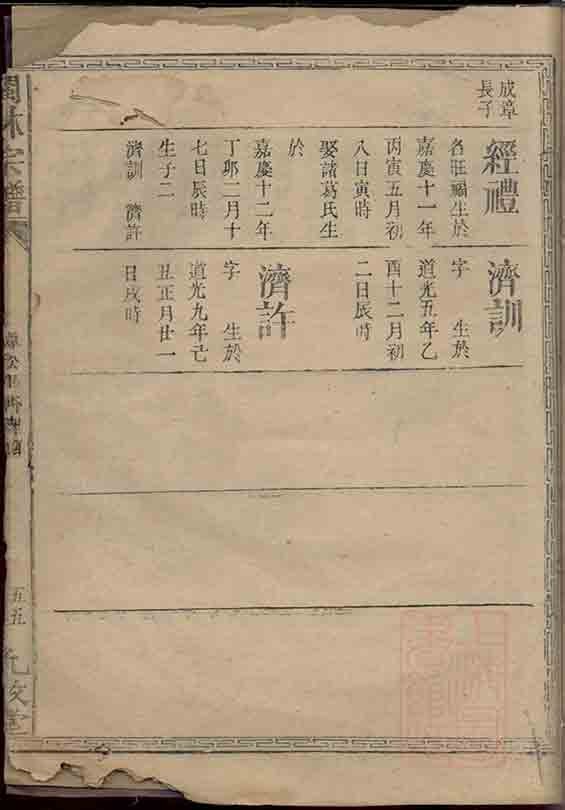 成章
長子
經禮
名旺福生於
嘉慶十一年
丙寅五月初
八日寅時
娶諸葛氏生
於
嘉慶十二年
丁卯二月十
七日辰時
生子二
濟訓 濟許
濟訓
字 生於
道光五年乙
酉十二月初
二日辰時
濟許
字 生於
道光九年己
丑正月廿一
日戌時
宗譜
五五